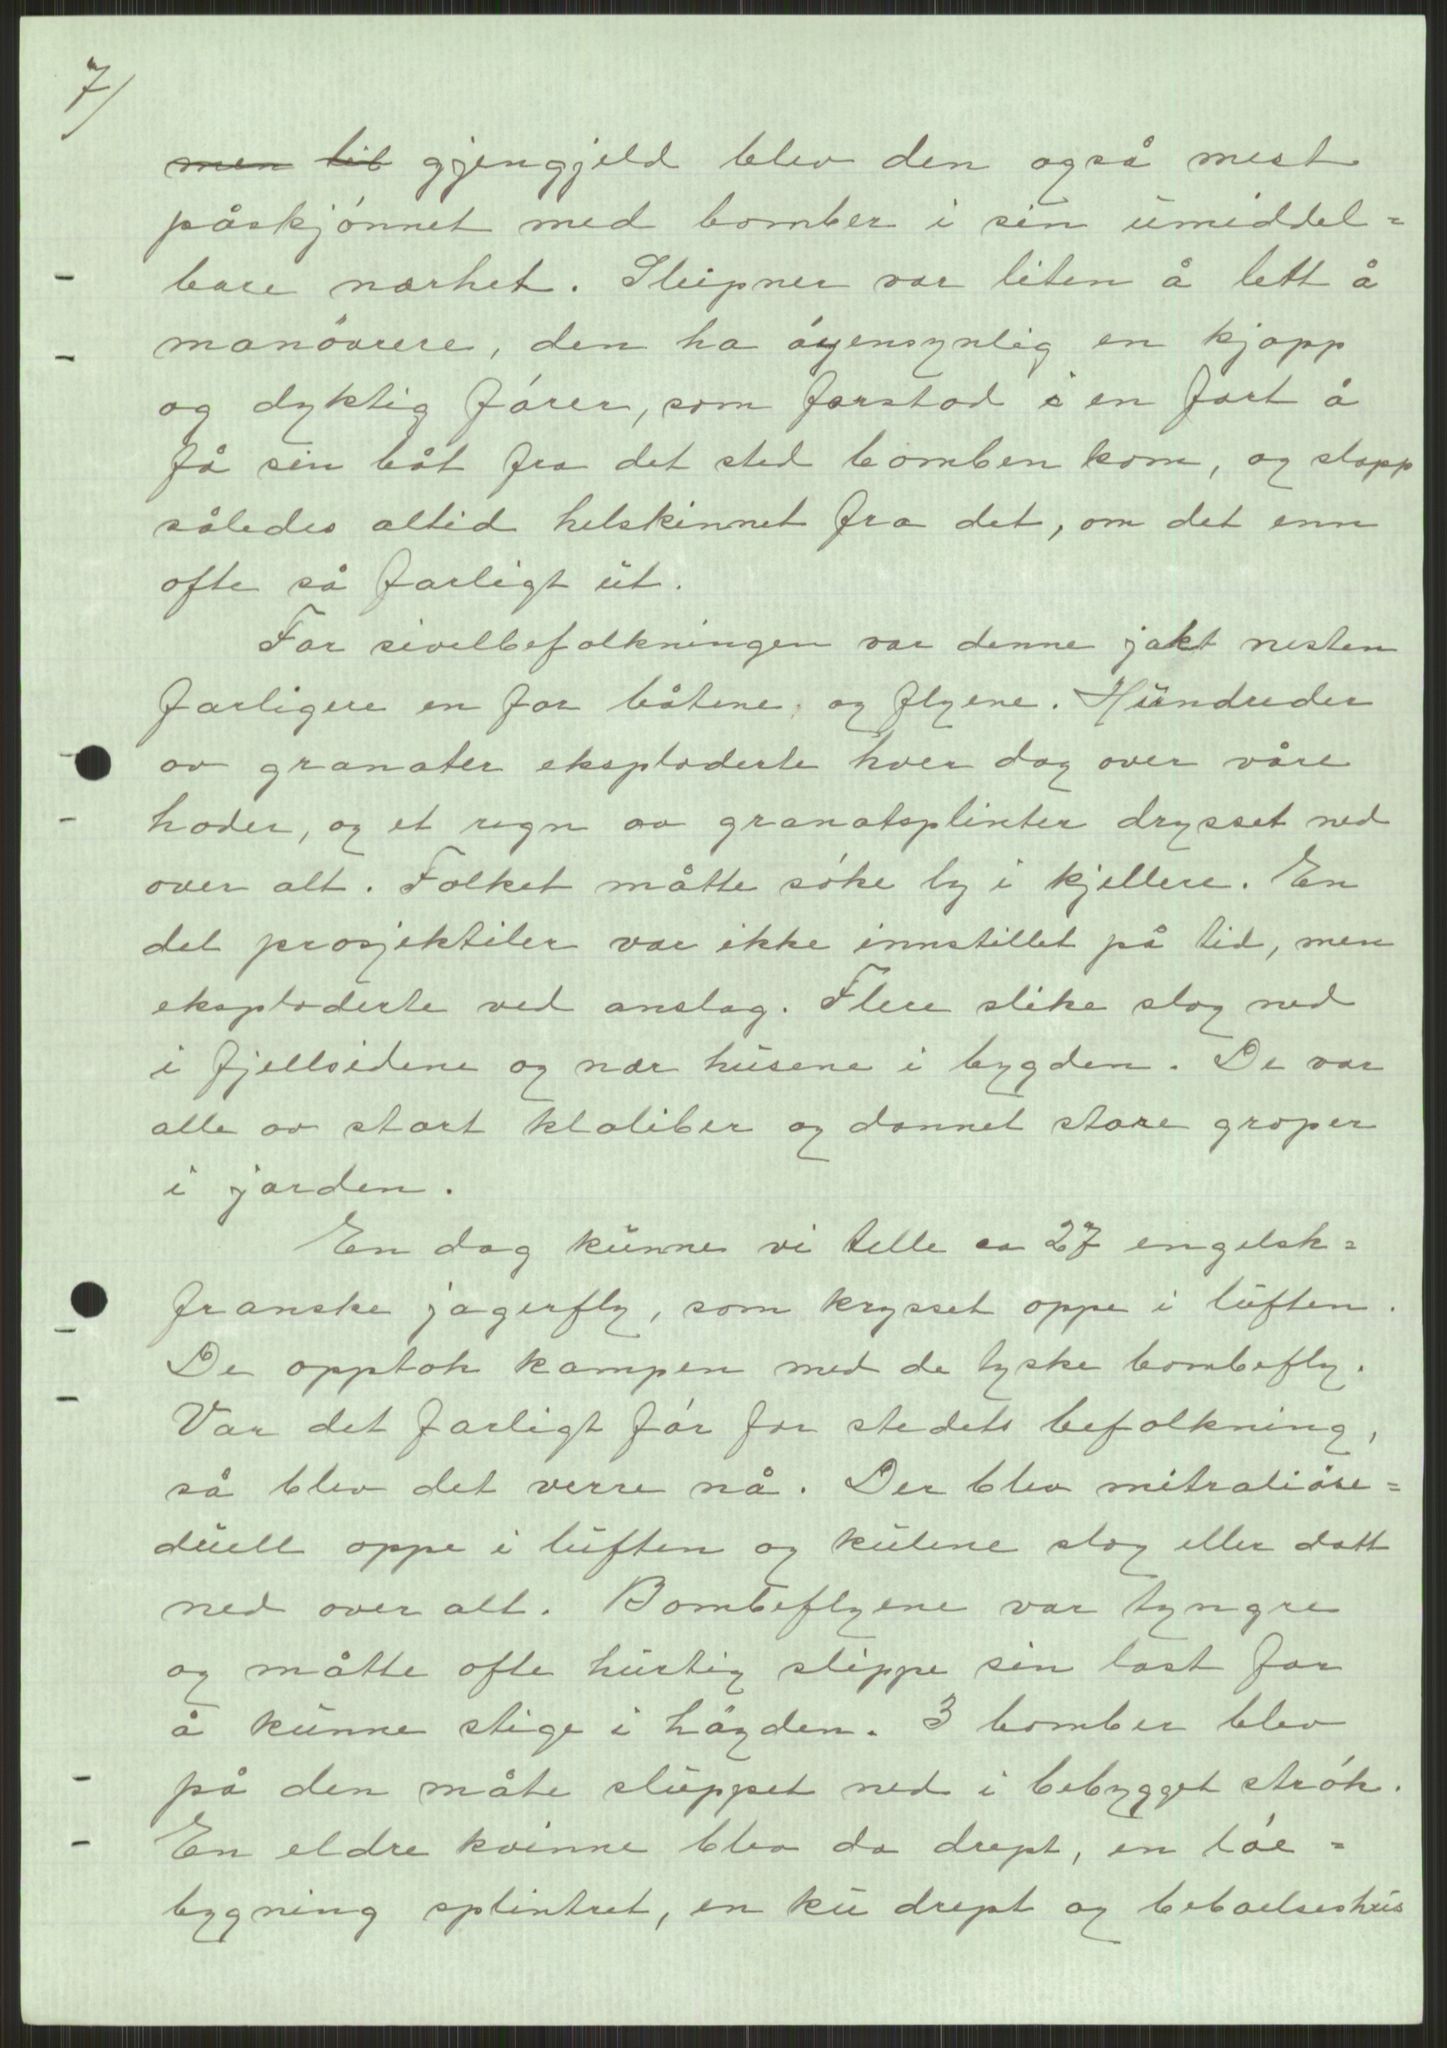 7/
men til gjengjeld blev den også mest
påskjónnet med bomber i sin umiddel=
bare nærhet. Sleipner var liten å lett å
manövrere, den ha óyensynlig en kjapp
og dyktig fórer, som forstod i en fart å
få sin båt fra det sted bomben kom, og slapp
således altid helskinnet fra det, om det enn
ofte så farligt ut.
For sivelbefolkningen var denne jakt nesten
farligere en for båtene og flyene. Hundreder
av granater eksploderte hver dag over våre
hoder, og et regn av granatsplinter drysset ned
over alt. Folket måtte sóke ly i kjellere. En
del prosjektiler var ikke innstillet på tid, men
eksploderte ved anslag. Flere slike slog ned
i fjellsidene og nær husene i bygden. De var
alle av stort klaliber og dannet store groper
i jorden.
En dag kunne vi telle ca 27 engelsk=
franske jagerfly, som krysset oppe i luften.
De opptok kampen med de tyske bombefly.
Var det farligt fór for stedets befolkning,
så blev det verre nå. Der blev mitraliöse=
duell oppe i luften og kulene slog eller datt
ned over alt. Bombeflyene var tyngre
og måtte ofte hurtig slippe sin last for
å kunne stige i höyden. 3 bomber blev
på den måte sluppet ned i bebygget strók.
En eldre kvinne blev da drept, en lóe=
bygning splintret, en ku drept og beboelseshus